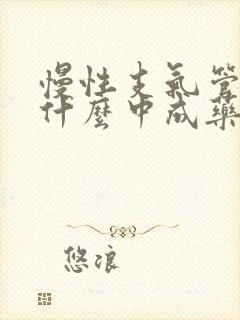 慢性支氣管
什麼中成藥
悠浪